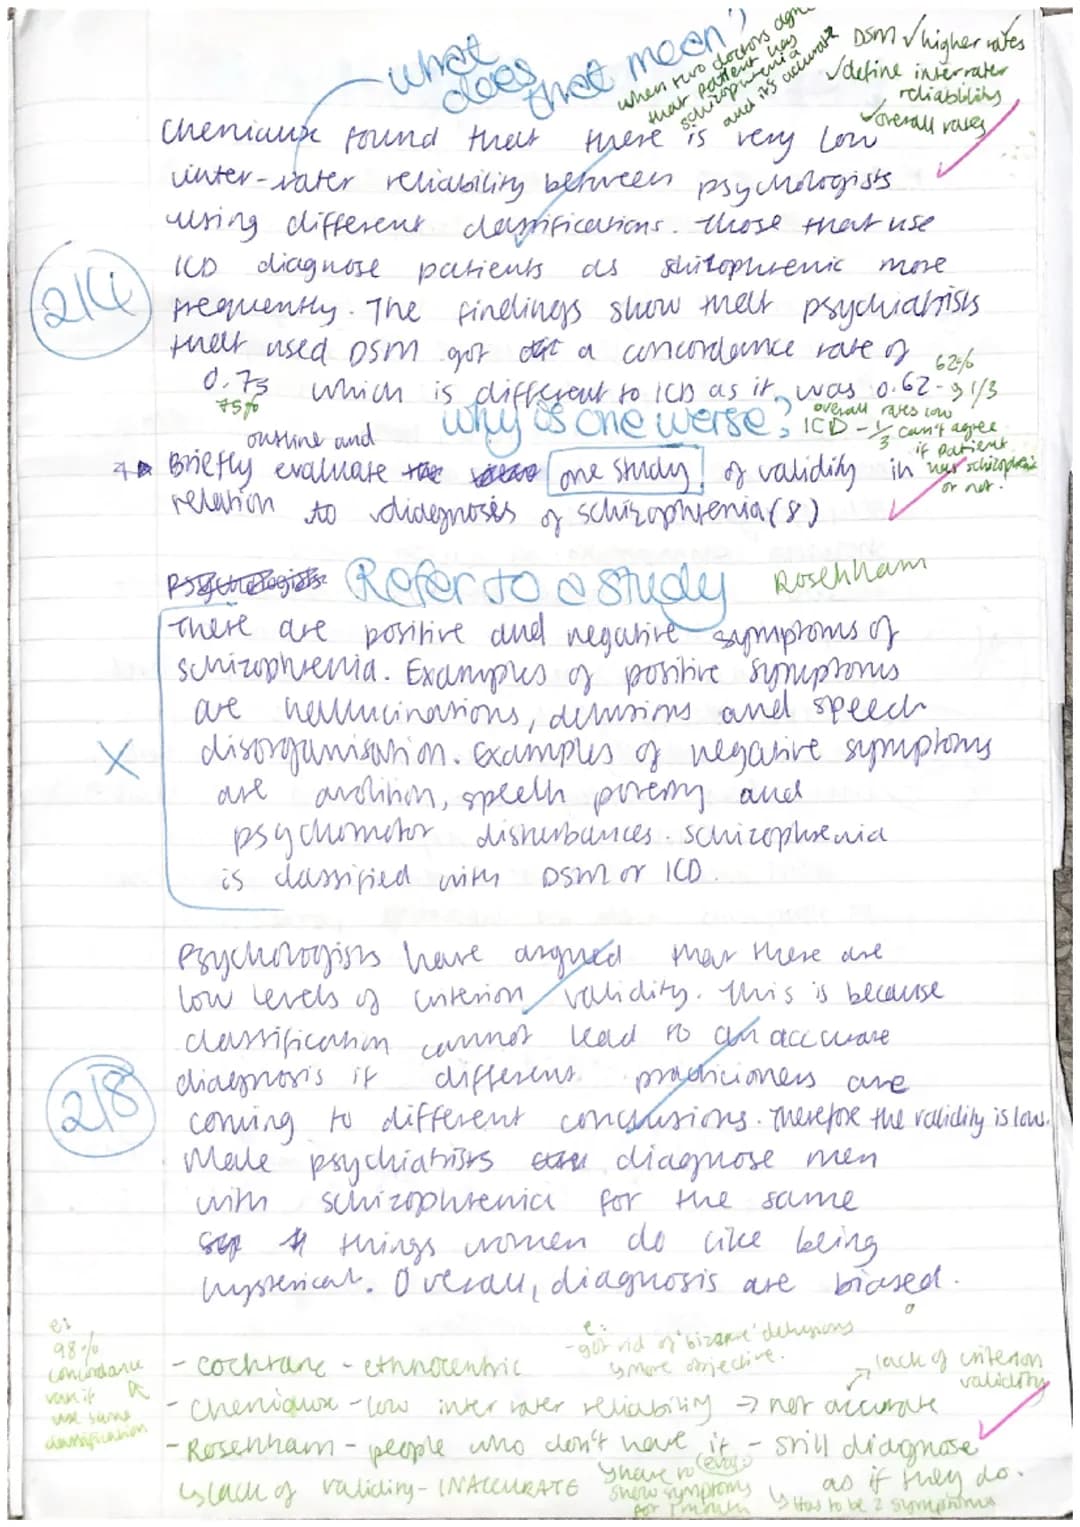 what does that mean?
when two doctors agree
that patient has
schizophrenia
and it's accurate
DSM ✓ higher rates
✓ define interrater
reliability
✓ overall rates
Cheniaux found that there is very low
inter-rater reliability between psychologists
using different classifications. Those that use
ICD diagnose patients as schizophrenic more
frequently. The findings show that psychiatrists
that used DSM got a concordance rate of
0.75 which is different to ICD as it was 0.62
75%
62%
→ 1/3
2/4
why is one worse?
overall rates low
ICD - 1/3 can't agree
if patient
was schizophrenic
or not.
outline and
Briefly evaluate one study of validity in
relation to diagnosis of schizophrenia (8)
Psychologists
Refer to a study
Rosenham
There are positive and negative symptoms of
schizophrenia. Examples of positive symptoms
are hallucinations, delusions and speech
disorganisation. Examples of negative symptoms
are avolition, speech poverty and
psychomotor disturbances. Schizophrenia
is classified with DSM or ICD.
X
Psychologists have argued that there are
low levels of criterion validity. This is because
classification cannot lead to an accurate
diagnosis if different practicioners are
coming to different conclusions. Therefore the validity is low.
2/8
Male psychiatrists diagnose men
with schizophrenia for the same
things women do like being
hysterical. Overall, diagnosis are biased.
e:
98%
concordance
rate if
use same
classification
e:
- got rid of 'bizarre' delusions
↳ more objective.
- Cochrane - ethnocentric
→ lack of criterion
validity
- Cheniaux - low inter rater reliability → not accurate
- Rosenham - people who don't have it - still diagnose
as if they do.
↳ lack of validity - INACCURATE
↳ have to
show symptoms
for 1 month
↳ Has to be 2 symptoms